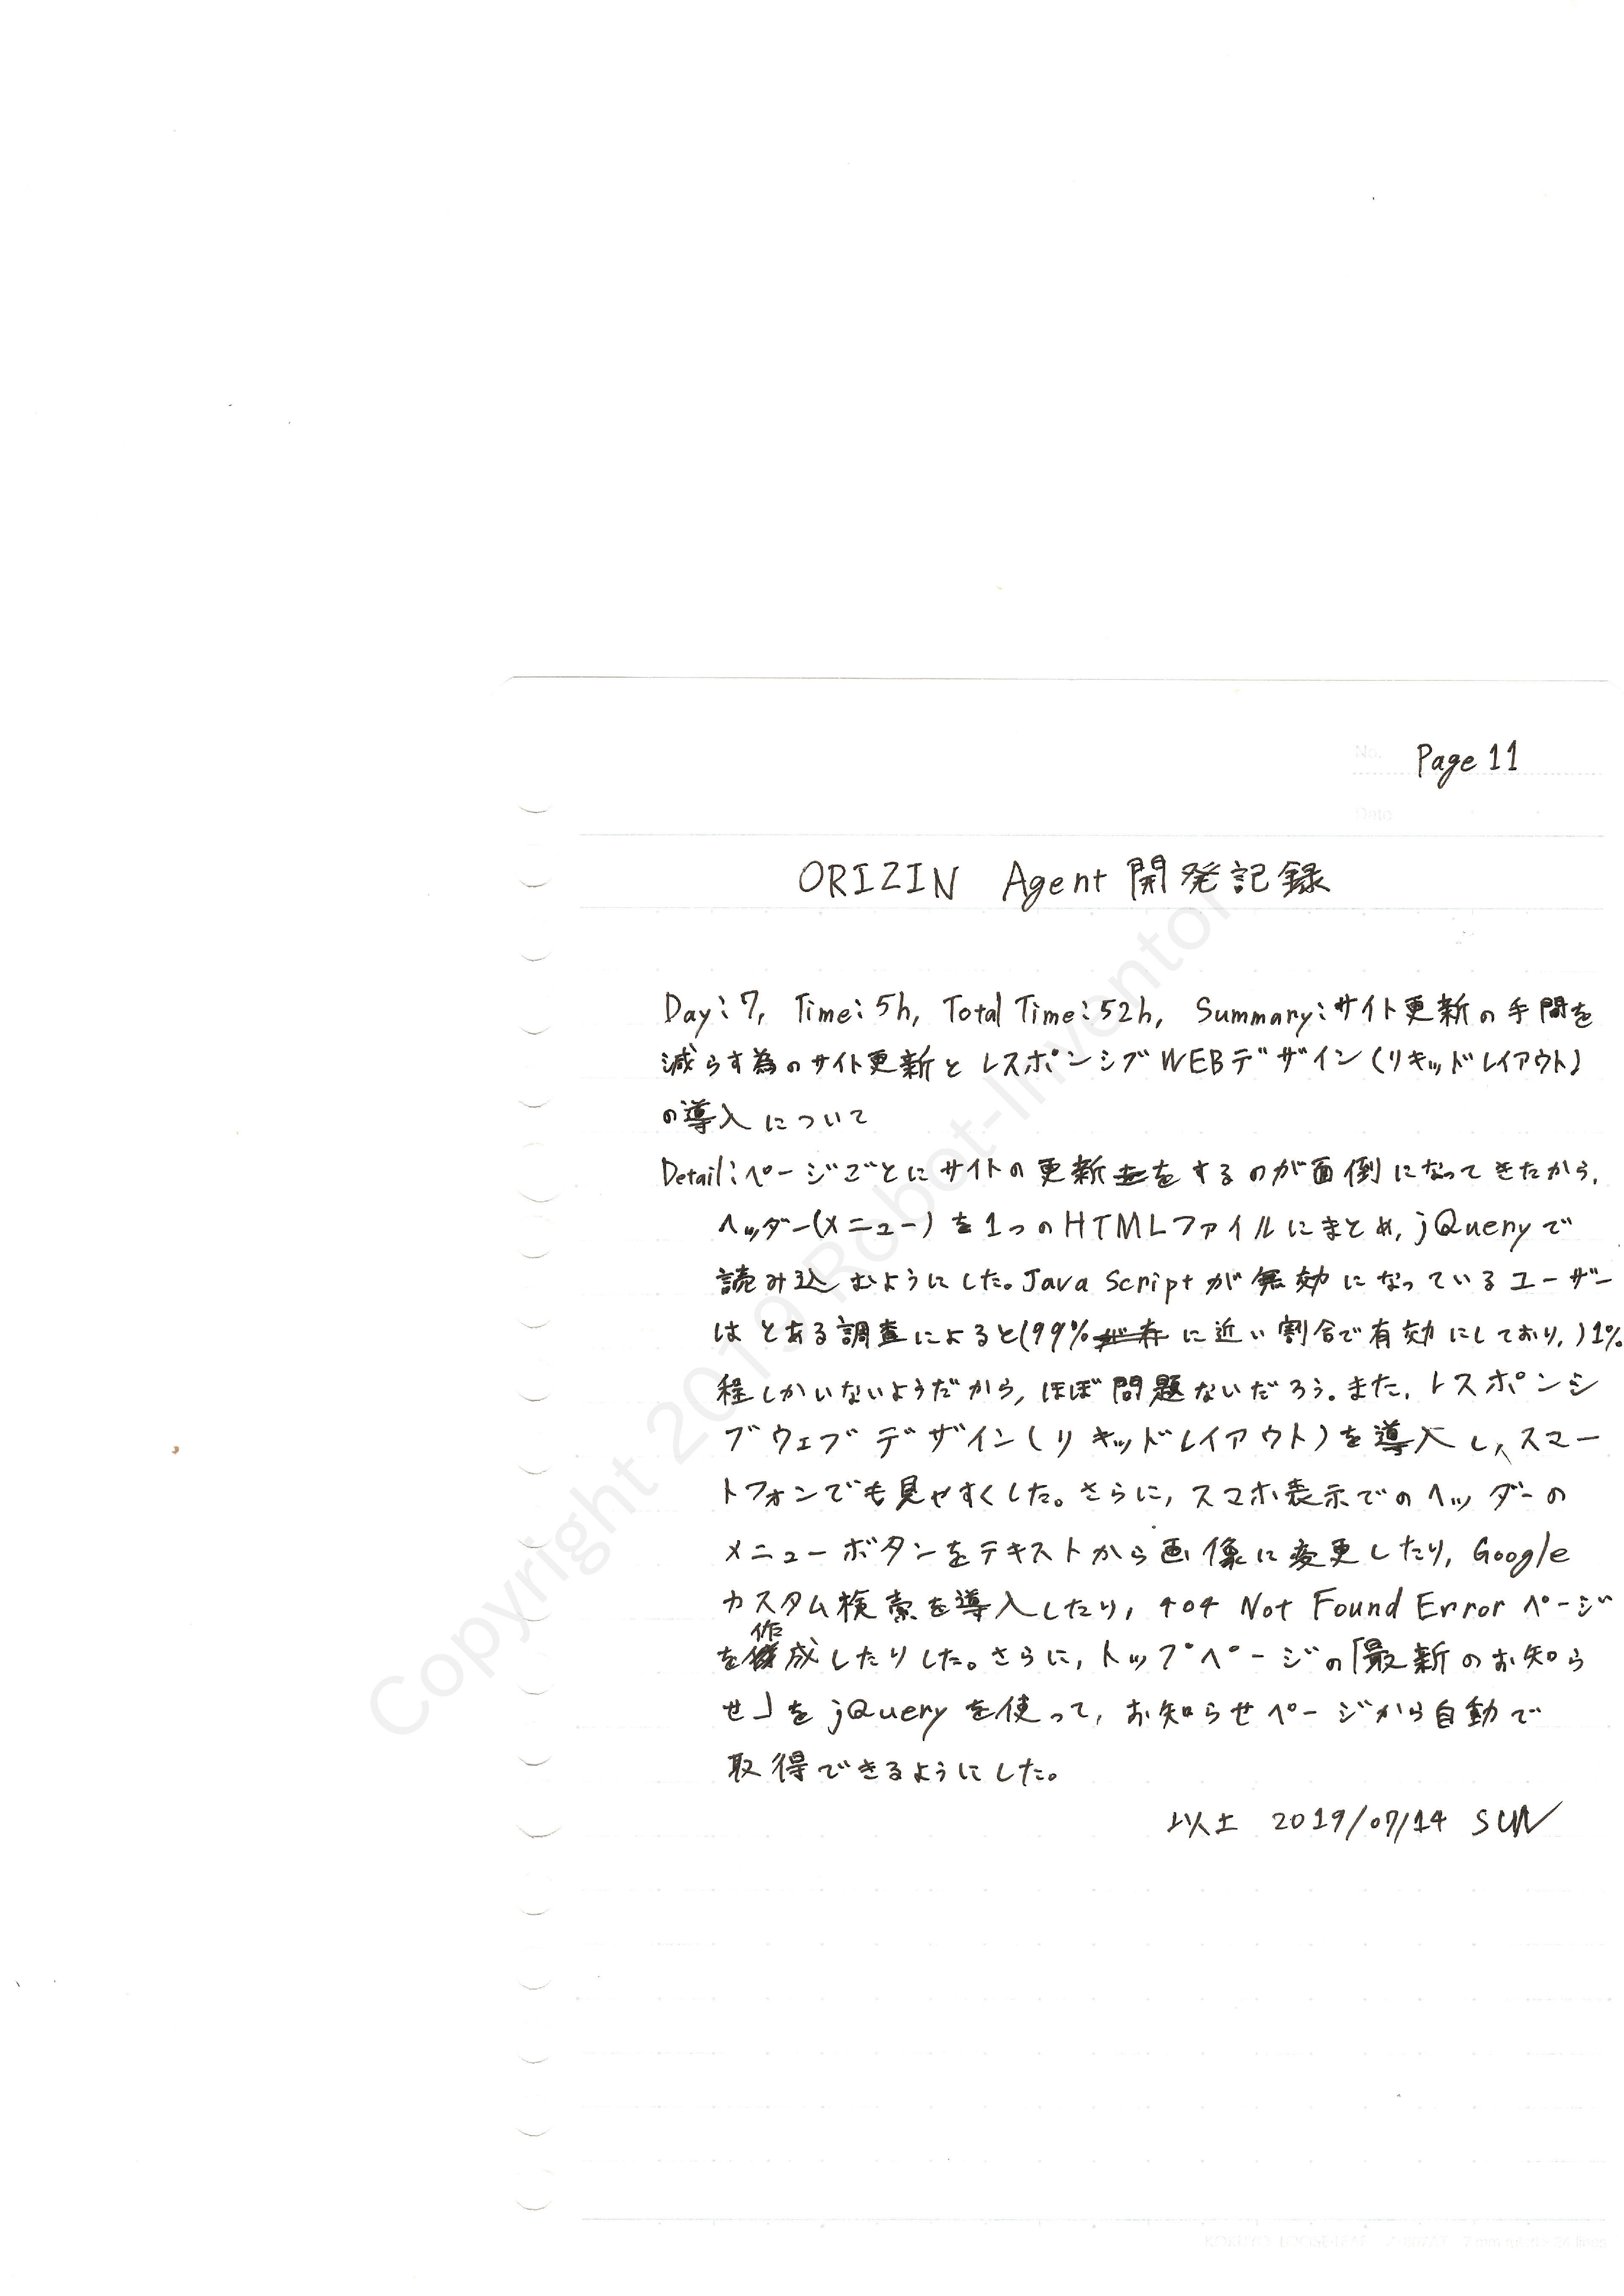 No.
Page 11
Date
ORIZIN Agent 開発記録
Day:7, Time:5h, Total Time:52h, Summary:サイト更新の手間を
減らす為のサイト更新とレスポンシブWEBデザイン(リキッドレイアウト)
の導入について
Detail:ページごとにサイトの更新をするのが面倒になってきたから,
ヘッダー(メニュー)を1つのHTMLファイルにまとめ,jQueryで
読み込むようにした。Java Scriptが無効になっているユーザー
はとある調査によると(99%に近い割合で有効にしており,)1%
程しかいないようだから,ほぼ問題ないだろう。また,レスポンシ
ブウェブデザイン(リキッドレイアウト)を導入し,スマー
トフォンでも見やすくした。さらに,スマホ表示でのヘッダーの
メニューボタンをテキストから画像に変更したり,Google
カスタム検索を導入したり,404 Not Found Errorページ
を作成したりした。さらに,トップページの「最新のお知ら
せ」をjQueryを使って,お知らせページから自動で
取得できるようにした。
以上 2019/07/14 SUN
Copyright 2019 Robot-Inventor